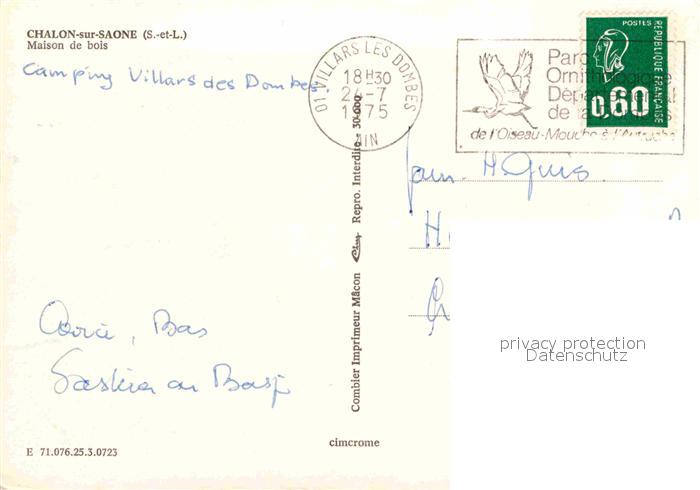 CHALON-sur-SAONE (S.-et-L.)
Maison de bois
Camping Villars des Dombes
01 VILLARS LES DOMBES
18H30
24-7
1975
AIN
Parc
Ornithologique
Départemental
de la
de l'Oiseau-Mouche à l'Autruche
POSTES
REPUBLIQUE FRANÇAISE
0,60
Fam.
H
Bas
Saskia en
Combier Imprimeur Mâcon Repro. Interdite 30-000
cimcrome
E 71.076.25.3.0723
privacy protection
Datenschutz